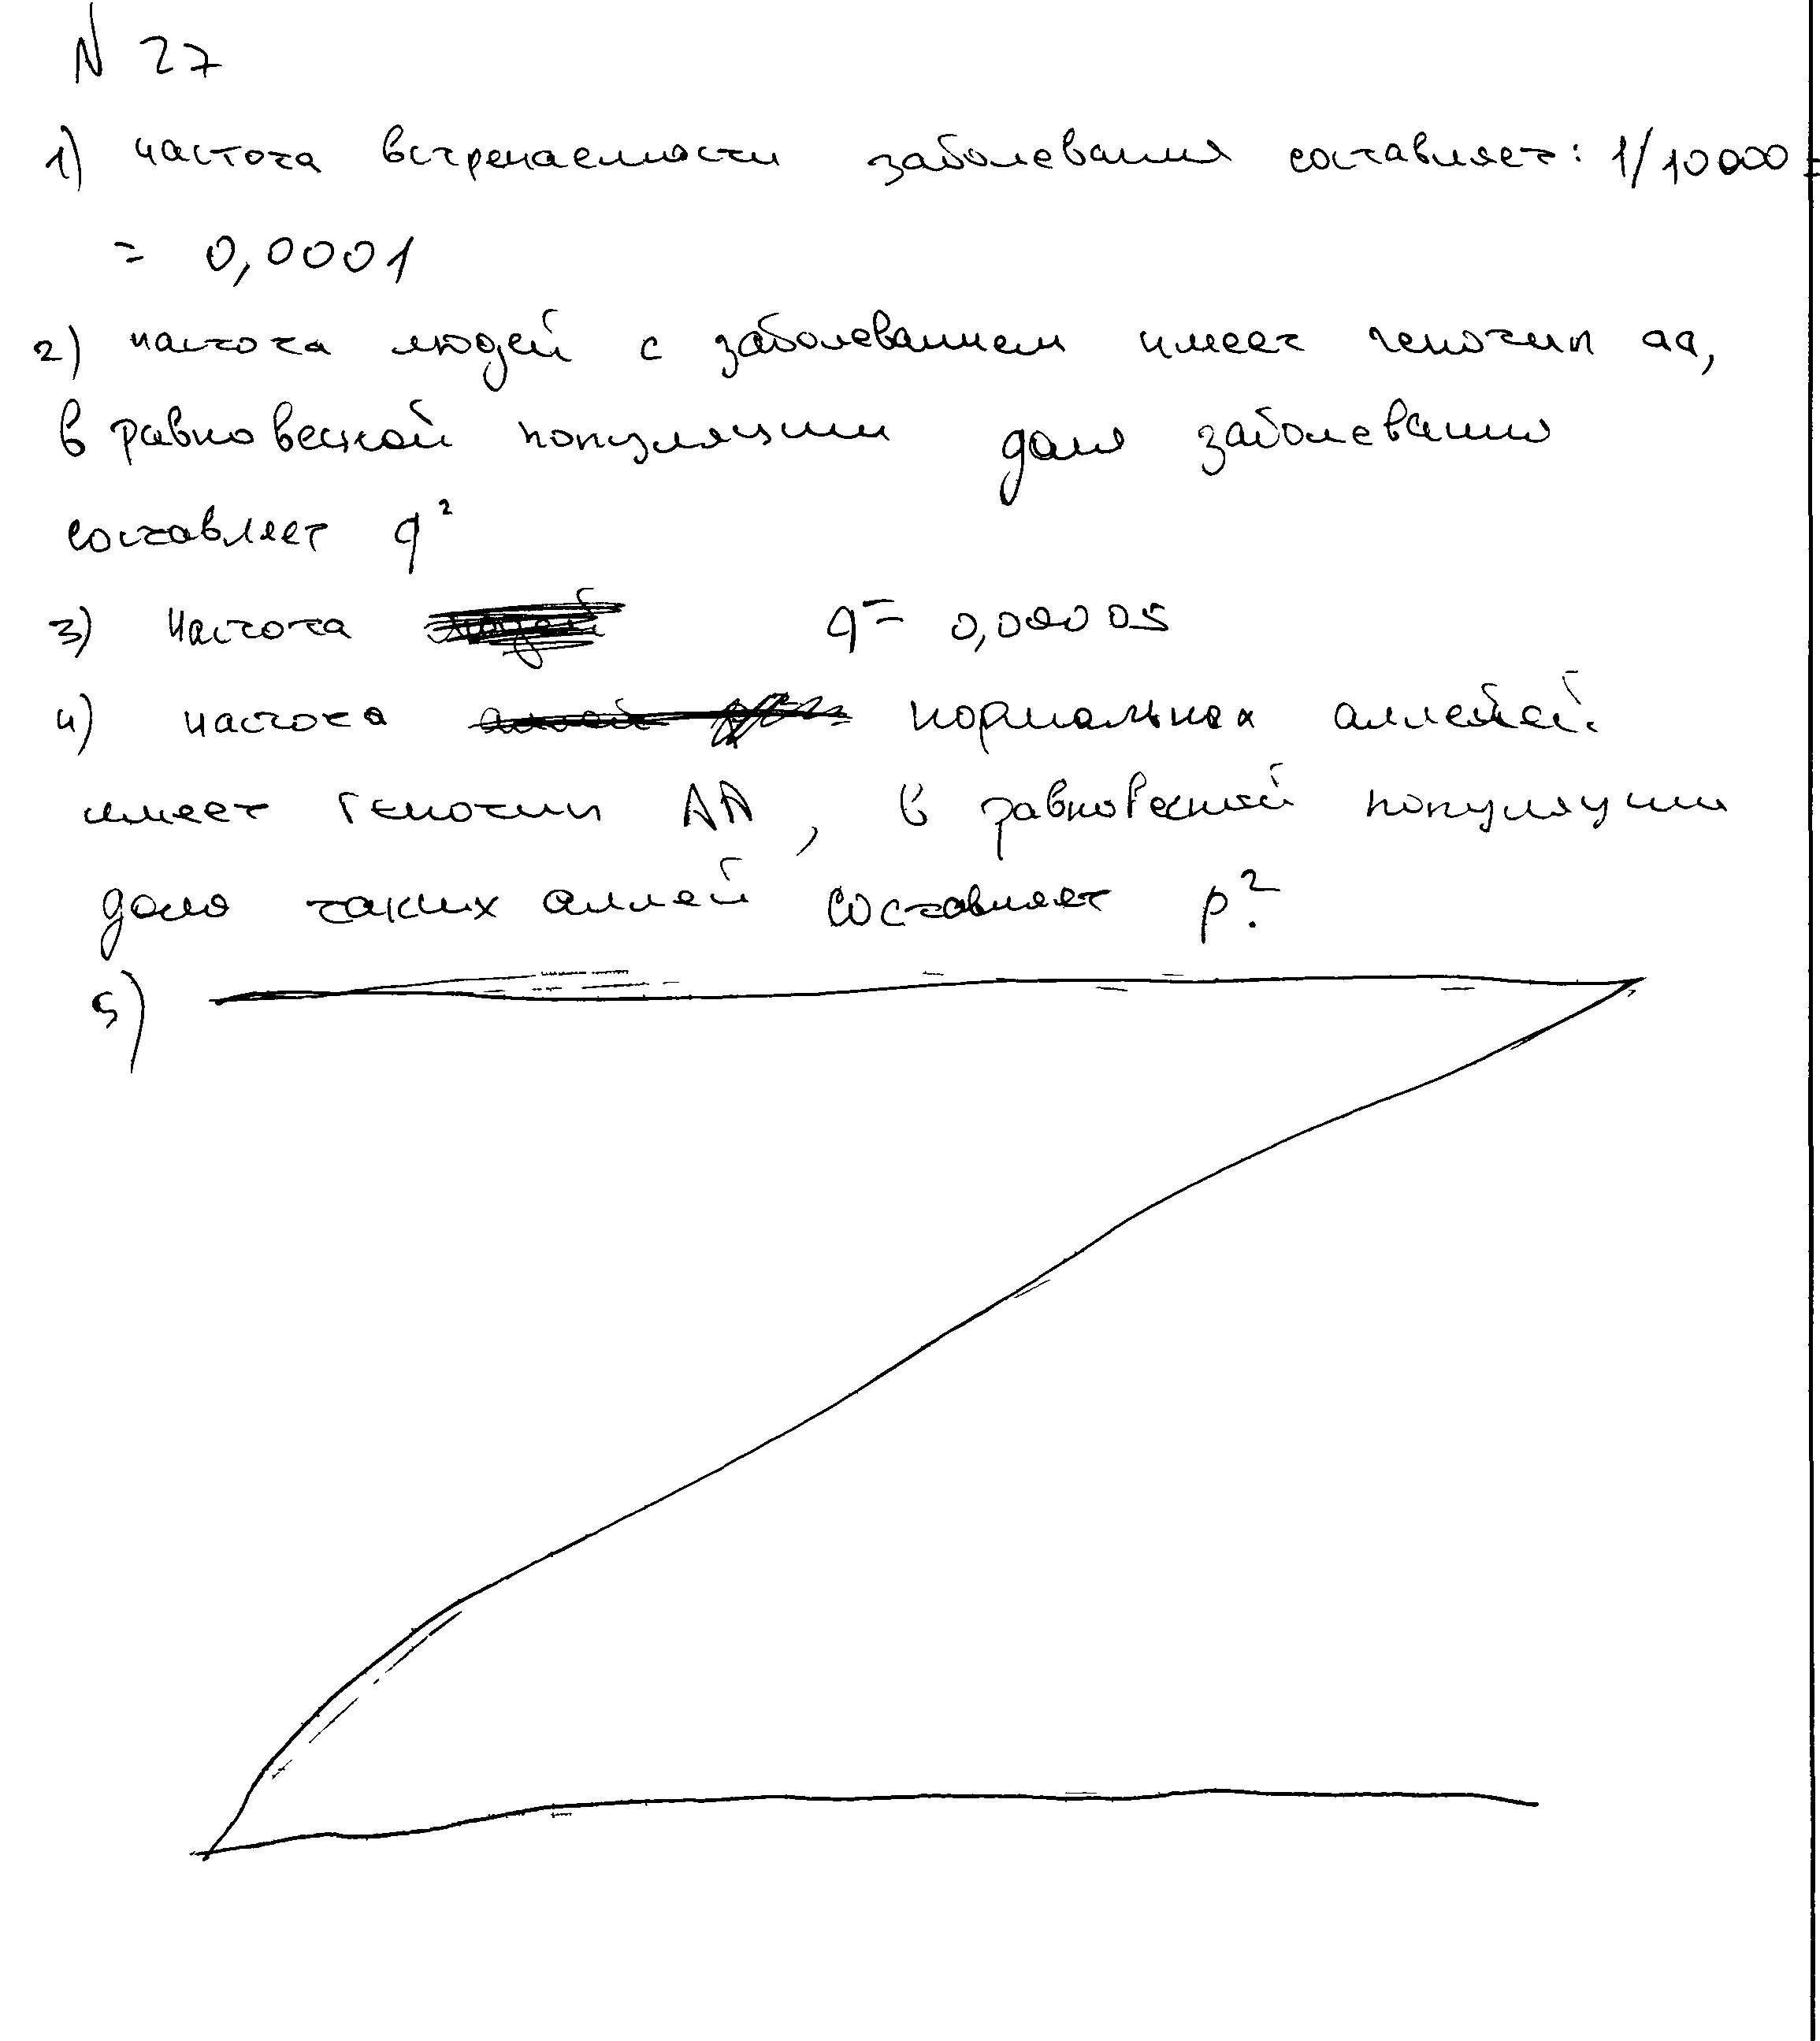 N 27
1) частота встречаемости заболевания составляет: 1/10000 =
= 0,0001
2) частота людей с заболеванием имеет генотип aa,
в равновесной популяции доля заболевания
составляет q²
3) частота q = 0,00005
4) частота нормальных аллелей
имеет генотип AA, в равновесной популяции
доля таких аллей составляет p²
5)